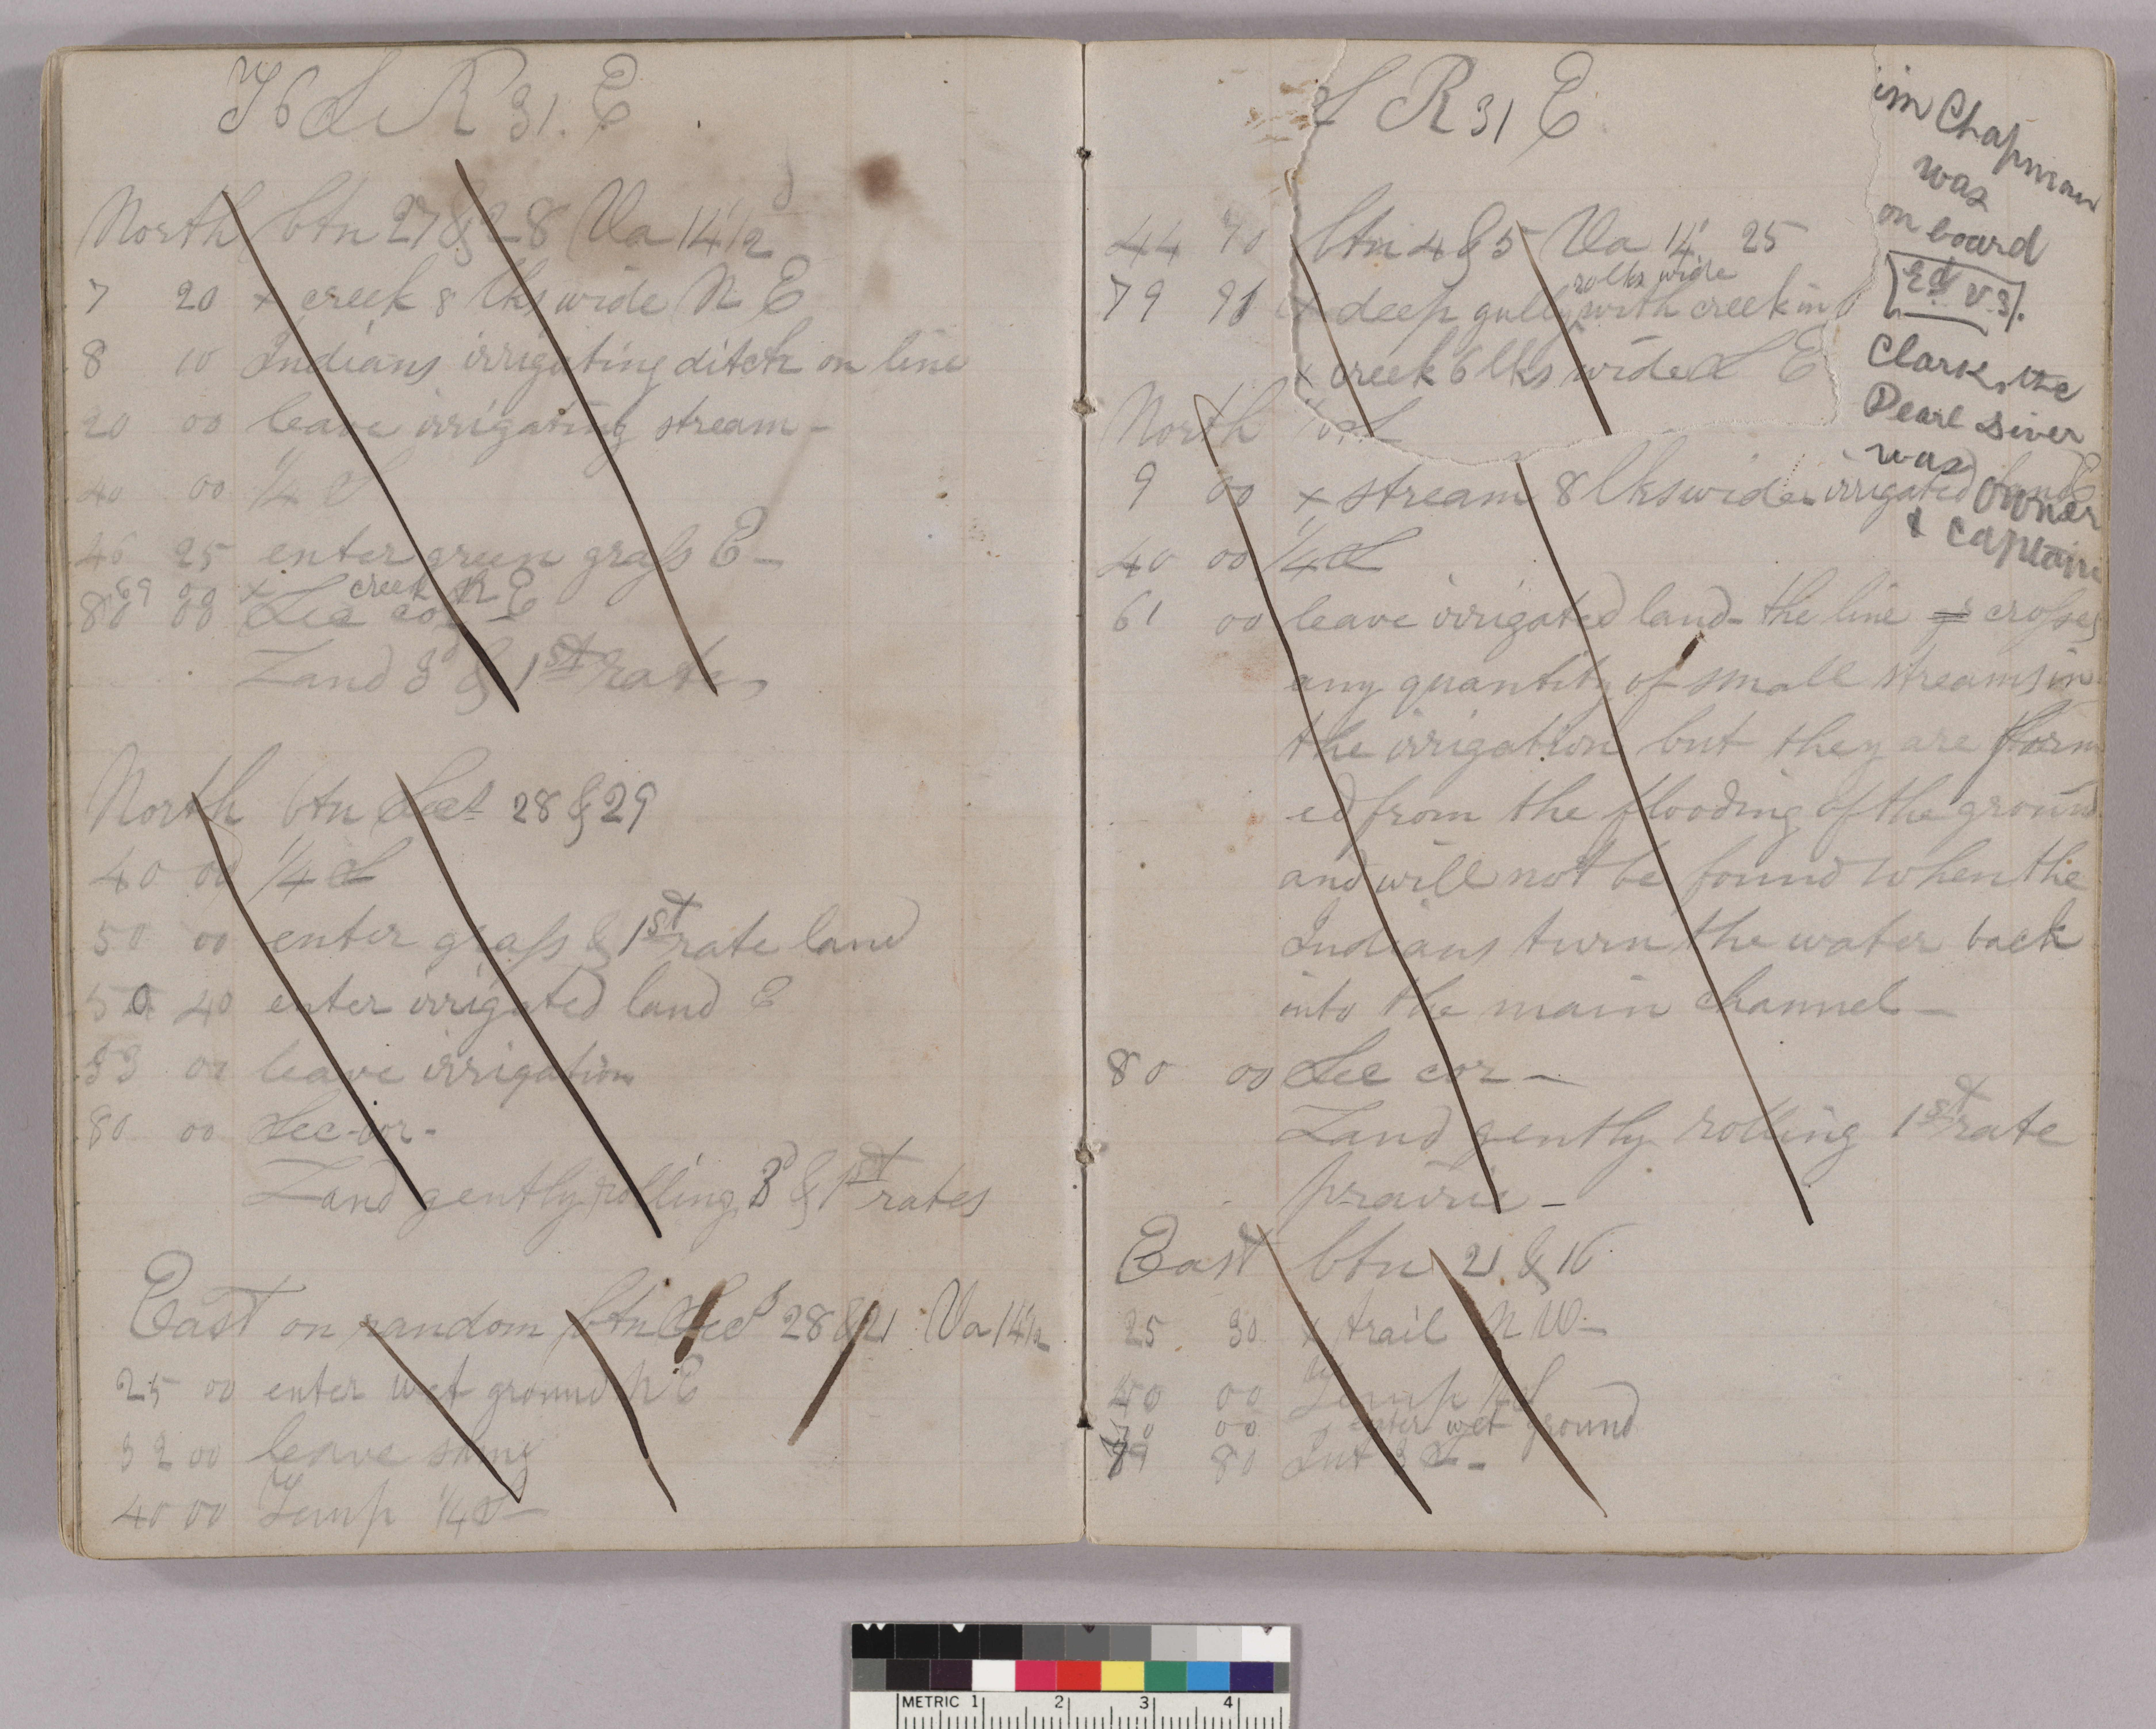 T 6 S R 31. E
North btn 27 & 28 Va 14 1/2
7 20 x creek 8 lks wide N E
8 10 Indians irrigating ditch on line
20 00 leave irrigating stream -
40 00 1/4 S
46 25 enter green grass E -
69 00 x creek N E
80 00 Sec cor -
Land 3d & 1st rate
North btn Secs 28 & 29
40 00 1/4 S
50 00 enter grass & 1st rate land
50 40 enter irrigated land E
53 00 leave irrigation
80 00 Sec cor -
Land gently rolling 3d & 1st rates
East on random btn Secs 28 & 21 Va 14 1/2
25 00 enter wet ground N E
32 00 leave same
40 00 Temp 1/4 S -
S R 31 E
44 70 btn 4 & 5 Va 14° 25
20 lks wide
79 91 x deep gully with creek in
x creek 6 lks wide S E
North
9 00 x stream 8 lks wide irrigated land E
40 00 1/4 S
61 00 leave irrigated land - the line crosses
any quantity of small streams in
the irrigation but they are form
ed from the flooding of the ground
and will not be found when the
Indians turn the water back
into the main channel -
80 00 Sec cor -
Land gently rolling 1st rate
prairie -
East btn 21 & 16
25 30 x trail N W -
40 00 Temp 1/4 S
70 00 enter wet ground
79 80 Int S -
im Chapman
was
on board
Ed V.S.
Clark, the
Pearl diver
was
owner
& captain